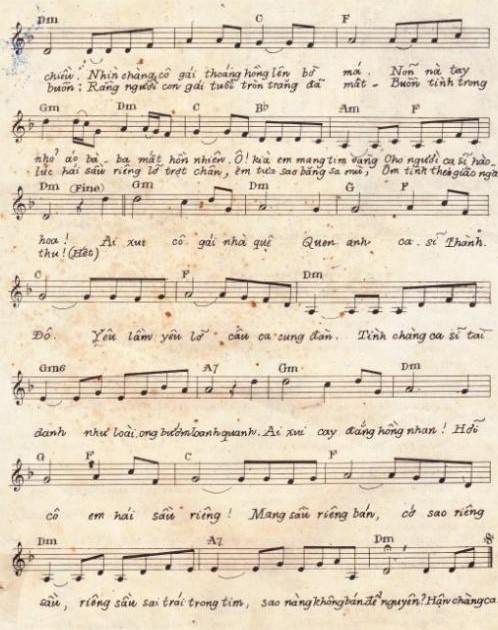 Dm C F
chiều. Nhìn chàng cô gái thoáng hồng lên bờ má. Nõn nà tay
buồn: Rằng người con gái tuổi tròn trăng đã mất - Buồn tình trong
Gm Dm C Bb Am F
nhỏ áo bà-ba mắt hồn nhiên, Ô! kìa em mang tim vàng Cho người ca sĩ hào
lúc hái sầu riêng lỡ trợt chân, em tựa sao băng sa mù, Ôm tình theo giáo ngà
Dm (Fine) Gm Dm G F
hoa! Ai xui cô gái nhà quê Quen anh ca-sĩ Thành.
thu! (Hết)
C F Dm
Đô. Yêu lầm yêu lỡ câu ca cung đàn. Tình chàng ca sĩ tài
Gm6 A7 Gm Dm
danh như loài ong bướm loanh quanh. Ai xui cay đắng hồng nhan! Hỡi
G F C F
cô em hái sầu riêng! Mang sầu riêng bán, cớ sao riêng
Dm A7 Dm
sầu, riêng sầu sai trái trong tim, sao nàng không bán để nguyên? Hận chàng ca